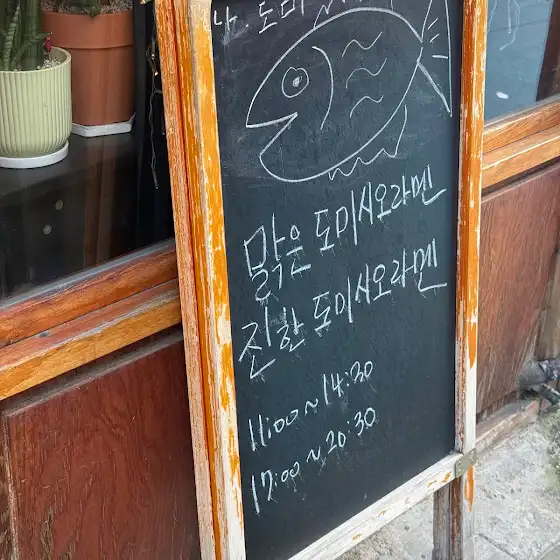 나. 도미
맑은 도미시오라멘
진한 도미시오라멘
11:00~14:30
17:00~20:30